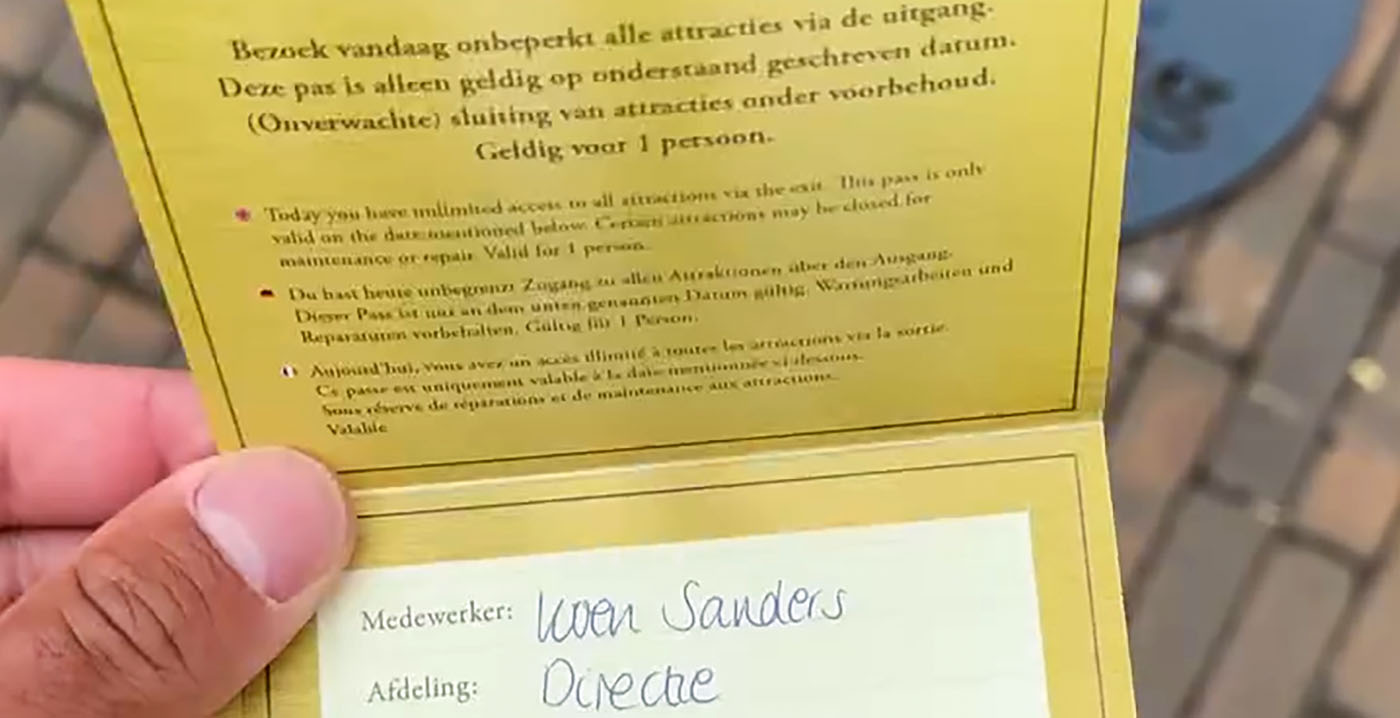 Bezoek vandaag onbeperkt alle attracties via de uitgang.
Deze pas is alleen geldig op onderstaand geschreven datum.
(Onverwachte) sluiting van attracties onder voorbehoud.
Geldig voor 1 persoon.
Today you have unlimited access to all attractions via the exit. This pass is only
valid on the date mentioned below. Certain attractions may be closed for
maintenance or repair. Valid for 1 person.
Du hast heute unbegrenzt Zugang zu allen Attraktionen über den Ausgang.
Dieser Pass ist nur an dem unten genannten Datum gültig. Wartungsarbeiten und
Reparaturen vorbehalten. Gültig für 1 Person.
Aujourd'hui, vous avez un accès illimité à toutes les attractions via la sortie.
Ce passe est uniquement valable à la date mentionnée ci-dessous.
Sous réserve de réparations et de maintenance aux attractions.
Valable
Medewerker: Koen Sanders
Afdeling: Directie